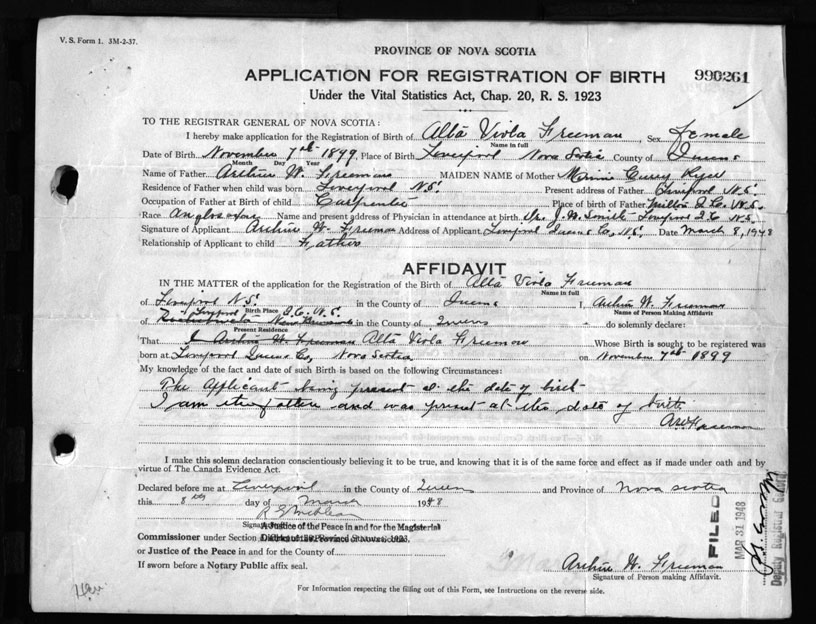 V. S. Form 1. 3M-2-37.
PROVINCE OF NOVA SCOTIA
APPLICATION FOR REGISTRATION OF BIRTH 990261
Under the Vital Statistics Act, Chap. 20, R. S. 1923
TO THE REGISTRAR GENERAL OF NOVA SCOTIA:
I hereby make application for the Registration of Birth of Alta Viola Freeman, Sex Female
Name in full
Date of Birth November 7th 1899, Place of Birth Liverpool Nova Scotia County of Queens
Month Day Year
Name of Father Arthur W. Freeman MAIDEN NAME of Mother
Residence of Father when child was born Liverpool N.S. Present address of Father Liverpool N.S.
Occupation of Father at Birth of child Carpenter Place of Birth of Father Milton Q.C. N.S.
Race Anglosaxon Name and present address of Physician in attendance at birth Dr. J. W. Smith Liverpool Q.C. N.S.
Signature of Applicant Arthur W. Freeman Address of Applicant Liverpool Queens Co, N.S. Date March 8, 1948
Relationship of Applicant to child Father
AFFIDAVIT
IN THE MATTER of the application for the Registration of the Birth of Alta Viola Freeman
Name in full
of Liverpool N.S. in the County of Queens I, Arthur W. Freeman
Birth Place Name of Person Making Affidavit
of Liverpool Q.C. N.S. in the County of Queens do solemnly declare:
Present Residence
That I Arthur W. Freeman Alta Viola Freeman Whose Birth is sought to be registered was
born at Liverpool Queens Co, Nova Scotia on November 7th 1899
My knowledge of the fact and date of such Birth is based on the following Circumstances:
The Applicant being present at the date of birth
I am the father and was present at the date of birth
A W Freeman
I make this solemn declaration conscientiously believing it to be true, and knowing that it is of the same force and effect as if made under oath and by
virtue of The Canada Evidence Act.
Declared before me at Liverpool in the County of Queens and Province of Nova Scotia
this 8th day of March 1948
A Justice of the Peace in and for the Magisterial
Commissioner under Section
or Justice of the Peace in and for the County of
If sworn before a Notary Public affix seal.
Arthur W. Freeman
Signature of Person making Affidavit.
For Information respecting the filling out of this Form, see Instructions on the reverse side.
FILED
MAR 31 1948
Deputy Registrar General